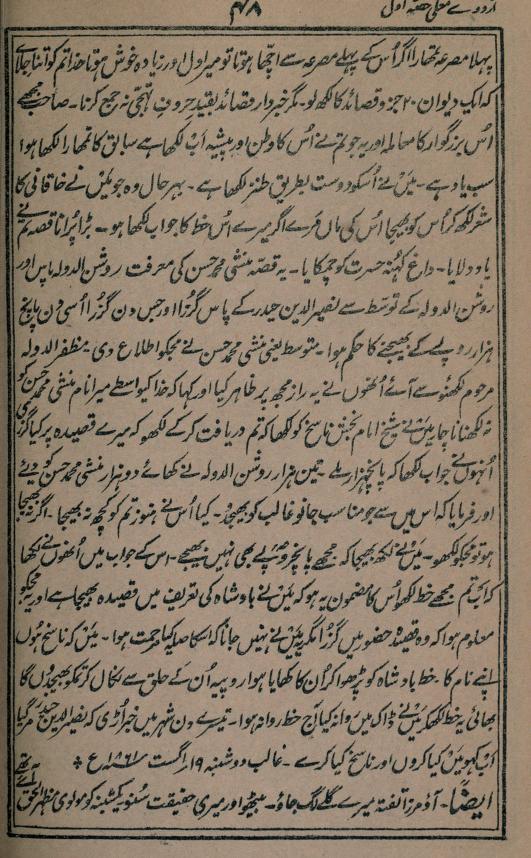 اردوے معلی حصہ اول
۴۸
پہلا مصرعہ تمھارا اگر اُس کے پہلے مصرعہ سے اچھا ہوتا تو میرا دل اور زیادہ خوش ہوتا خدا تم کو اتنا جلائے
کہ ایک دیوان ۲۰ جزو قصائد کا لکھ لو۔ مگر خبردار قصائد بقید حروف تہجی نہ جمع کرنا۔ صاحب مجھے
اُس بزرگوار کا معاملہ اور یہ جو تم نے اُس کا وطن اور پیشہ اب لکھا ہے سابق کا تمھارا لکھا ہوا
سب یاد ہے۔ میں نے اُسکو دوست بطریق طنز لکھا ہے۔ بہرحال وہ جو میں نے خاقانی کا
شعر لکھ کر اُس کو بھیجا اُس کی ماں مرے اگر میرے اُس خط کا جواب لکھا ہو۔ بڑا پرانا قصہ تم نے
یاد دلایا۔ داغ کہنہ حسرت کو چمکایا۔ یہ قصہ منشی محمد حسن کی معرفت روشن الدولہ پاس اور
روشن الدولہ کے توسط سے نصیر الدین حیدر کے پاس گزرا اور جس دن گزرا اُسی دن پانچ
ہزار روپیے کے بھیجنے کا حکم ہوا۔ متوسط یعنی منشی محمد حسن نے مجکو اطلاع دی۔ مظفر الدولہ
مرحوم لکھنؤ سے آئے اُنھوں نے یہ راز مجھ پر ظاہر کیا اور کہا کہ خدا کیواسطے میرا نام منشی محمد حسن کو
نہ لکھنا ناچار میں نے شیخ امام بخش ناسخ کو لکھا کہ تم دریافت کرکے لکھو کہ میرے قصیدہ پر کیا گزری
اُنہوں نے جواب لکھا کہ پانچہزار ملے۔ تین ہزار روشن الدولہ نے کھائے دو ہزار منشی محمد حسن کو دیے
اور فرمایا کہ اس میں سے جو مناسب جانو غالب کو بھیجدو۔ کیا اُس نے ہنوز تم کو کچھ نہ بھیجا۔ اگر نہ بھیجا
ہو تو مجکو لکھو۔ میں نے لکھ بھیجا کہ مجھے پانچ روپیے بھی نہیں بھیجے۔ اس کے جواب میں اُنھوں نے لکھا
کہ اب تم مجھے خط لکھو اُس کا مضمون یہ ہو کہ میں نے بادشاہ کی تعریف میں قصیدہ بھیجا ہے اور یہ مجکو
معلوم ہوا کہ وہ قصیدہ حضور میں گزرا مگر یہ میں نے نہیں جانا کہ اسکا صلہ کیا مرحمت ہوا۔ میں کہ ناسخ ہوں
اپنے نام کا خط بادشاہ کو پڑھوا کر اُن کا کھایا ہوا روپیہ اُن کے حلق سے نکال کر تمکو بھیجدوں گا
بھائی یہ خط لکھکر میں نے ڈاک میں روانہ کیا آج خط روانہ ہوا۔ تیسرے دن شہر میں خبر اُڑی کہ نصیر الدین حیدر مر گیا
اب کہو میں کیا کروں اور ناسخ کیا کرے۔ غالب دو شنبہ ۱۹ اگست ۱۸۶۱ع
ایضاً۔ آؤ مرزا تفتہ میرے گلے لگ جاؤ۔ بیٹھو اور میری حقیقت سنو یکشنبہ کو مولوی مظہر الحق آئے تھے